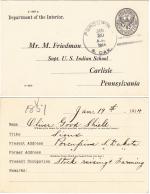 Department of the Interior.
Mr. M. Friedman
Supt. U. S. Indian School
Carlisle
Pennsylvania
Jan 19th 1914
Name Oliver Good Shield
Tribe Sioux
Present Address Porcupine S. Dakota
Present Occupation Stock raising & Farming
Remarks